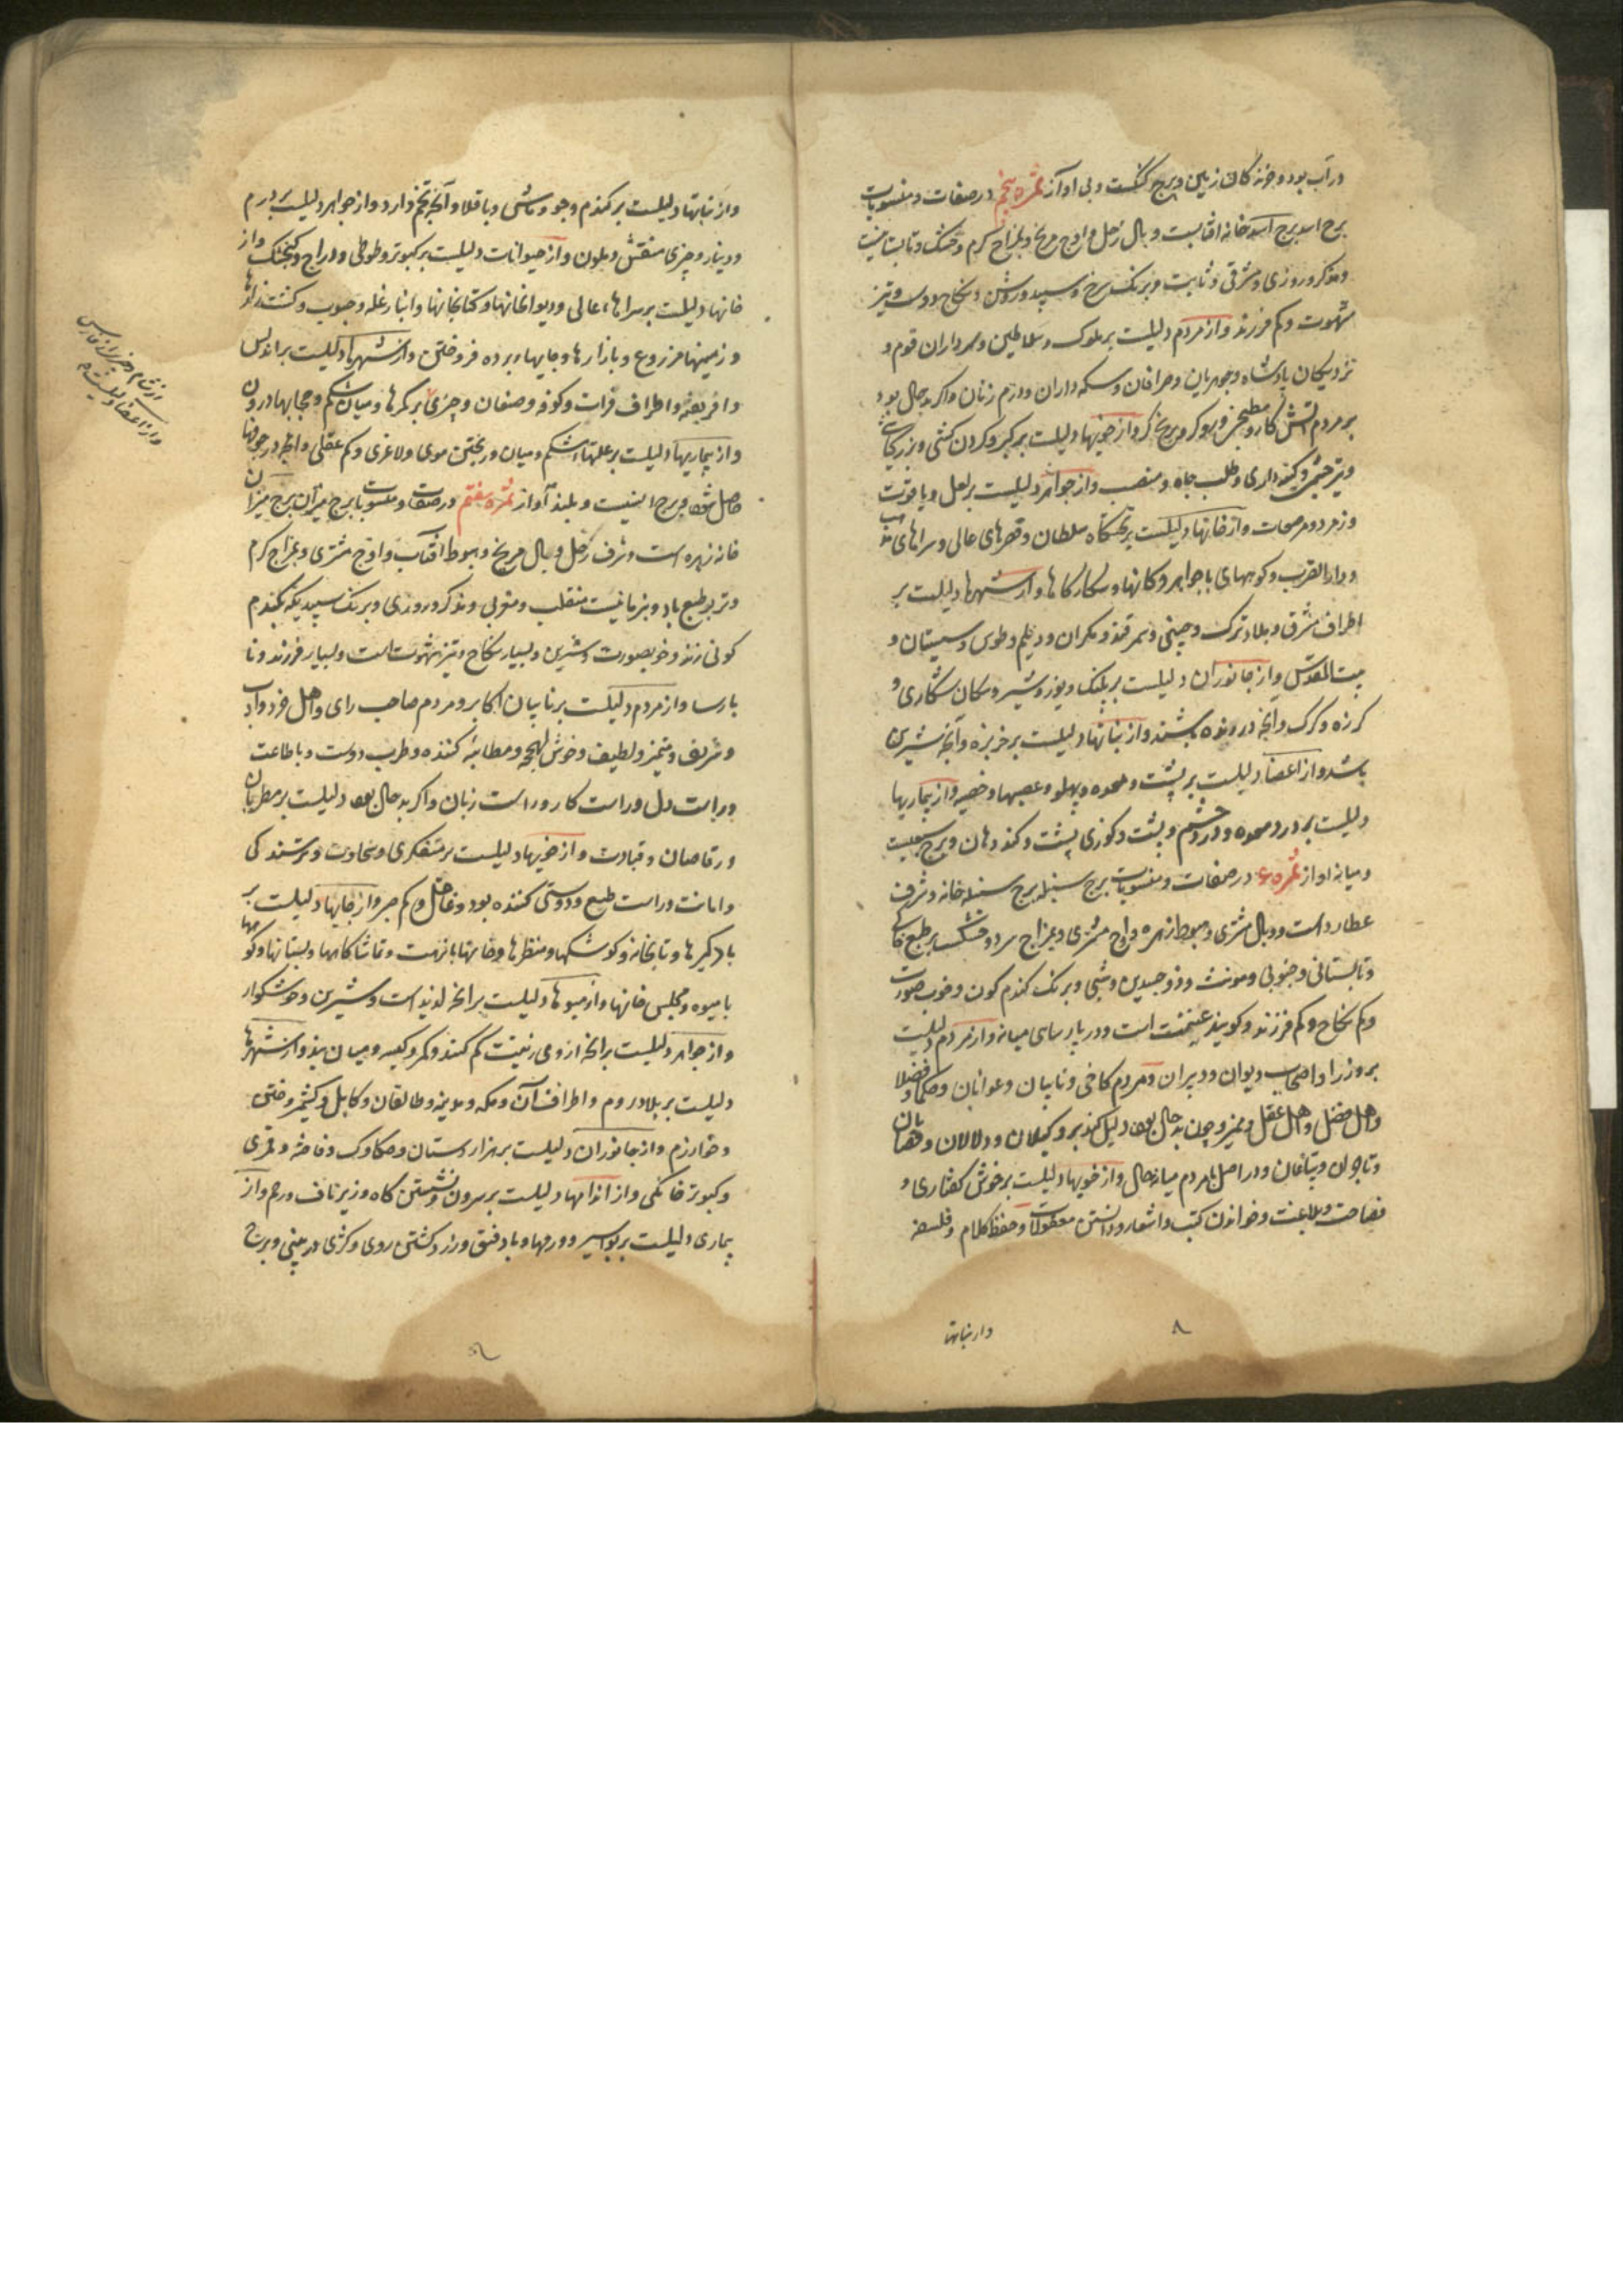 در آب بود و خزندگان زمین و برج گنگست و بی آواز ثمره پنجم در صفات و منسوبات
برج اسد برج اسد خانه آفتابست و بال زحل و اوج مریخ و بمزاج گرم و خشک و تابستانیست
و مذکر و روزی و مشرقی و ثابت و برنک سرخ و سپید و روشن و نکاح دوست و تیز
شهوت و کم فرزند و از مردم دلیلست بر ملوک و سلاطین و سرداران قوم و
نزدیکان پادشاه و جوهریان و صرافان و سکه داران و درم زنان و اگر بدحال بود
بر مردم آتش کار و مطبخی و از خویها دلیلست بر کبر و گردن کشی و
و تیزخشمی و کینه داری و طلب جاه و منصب و از جواهر دلیلست بر لعل و یاقوت
و زمرد و مرصعات و از خانها دلیلست بر تختگاه سلطان و قصرهای عالی و سراهای
و دار الضرب و کوههای با جواهر و کانها و شکارگاها و از شهرها دلیلست بر
اطراف مشرق و بلاد ترک و چین و سمرقند و مکران و دیلم و طوس و سیستان و
بیت المقدس و از جانوران دلیلست بر پلنک و یوز و شیر و سکان شکاری و
کرزه و کرک و آنچه درنده باشند و از نباتها دلیلست بر خربزه و آنچه شیرین
باشد و از اعضا دلیلست بر پشت و معده و پهلو و عصبها و خصیه و از بیماریها
دلیلست بر درد معده و درد چشم و پشت و کوزی پشت و کند دهان و برج سبعیست
و میانه آواز ثمره ۶ در صفات و منسوبات برج سنبله برج سنبله خانه و شرف
عطارد است و وبال مشتری و هبوط زهره و اوج مشتری و بمزاج سرد و خشکست بر طبع خاک
و تابستانی و جنوبی و مونث و ذو جسدین و شبی و برنک کندم کون و خوب صورت
و کم نکاح و کم فرزند و کویند عقیمست است و در پارسای میانه و از مردم دلیلست
بر وزرا و اصحاب دیوان و دبیران و مردم کافی و نایبان و عوانان و حکما و فضلا
و اهل فضل و اهل عقل و تمیز و چون بدحال بود دلیل کند بر وکیلان و دلالان و
و تاجران و بیاعان و در اصل نامردم میانه حال و از خویها دلیلست بر خوش گفتاری و
فصاحت و بلاغت و خواندن کتب و اشعار و دانستن معقولات و حفظ کلام و فلسفه
۸
و از نباتها
و از نباتها دلیلست بر کندم و جو و ماش و باقلا و آنچه تخم دارد و از جواهر دلیلست بر درم
و دینار و چیزی منقش و ملون و از حیوانات دلیلست بر کبوتر و طوطی و دراج و کنجشک و از
خانها دلیلست بر سراهای عالی و دیوانخانها و کتابخانها و انبار غله و حبوب و کشت زارها
و زمینهای مزروع و بازارها و جایهای برده فروختن و از شهرها دلیلست بر اندلس
و افریقیه و اطراف فرات و کوفه و صنعان و چیزی بر کمرها و میان شکم و حجابها درون
و از بیماریها دلیلست بر علتهای شکم و میان و ریختن موی و لاغری و کم عقلی و آنچه در جوفها
حاصل شود و برج انسیست و بلند آواز ثمره هفتم در صفات و منسوبات برج میزان برج میزان
خانه زهره است و شرف زحل و بال مریخ و هبوط آفتاب و اوج مشتری و بمزاج گرم
و تر بر طبع باد و منقلب و مغربی و مذکر و روزی و برنک سپید بکندم
کونی زند و خوبصورت و شیرین و بسیار نکاح و تیز شهوت است و بسیار فرزند و نا
پارسا و از مردم دلیلست بر نایبان اکابر و مردم صاحب رای و اهل خرد و آداب
و شریف و تمیز و لطیف و خوش لهجه و مطایبه کننده و طرب دوست و با طاعت
و راست دل و راست کار و راست زبان و اگر بدحال بود دلیلست بر مطربان
و رقاصان و قیادت و از خویها دلیلست بر متفکری و سخاوت و خرسندی
و امانت و راست طبع و دوستی کننده بود و غافل و کم صبر و از جایها دلیلست بر
بادکیرها و تابخانه و کوشکها و منظرها و جایها با نزهت و تماشا گاهها و بستانها و کوهها
با میوه و مجلس خانها و از میوها دلیلست بر آنچه لذیذ است و شیرین و خوشگوار
و از جواهر دلیلست بر آنچه از وی زینت کنند و کمر و کیسه و میان بند و از شهرها
دلیلست بر بلاد روم و اطراف آن و مکه و مدینه و طالقان و کابل و کشمیر و ختن
و خوارزم و از جانوران دلیلست بر هزار دستان و چکاوک و فاخته و قمری
و کبوتر خانگی و از اندامها دلیلست بر سرون و نشستن گاه و زیر ناف و رحم و از
بیماری دلیلست بر بواسیر و ورمها و باد فتق و زرد گشتن روی و کژی در بینی و برج
از شام و جزیره از فارس
و از اعضا دلیلست